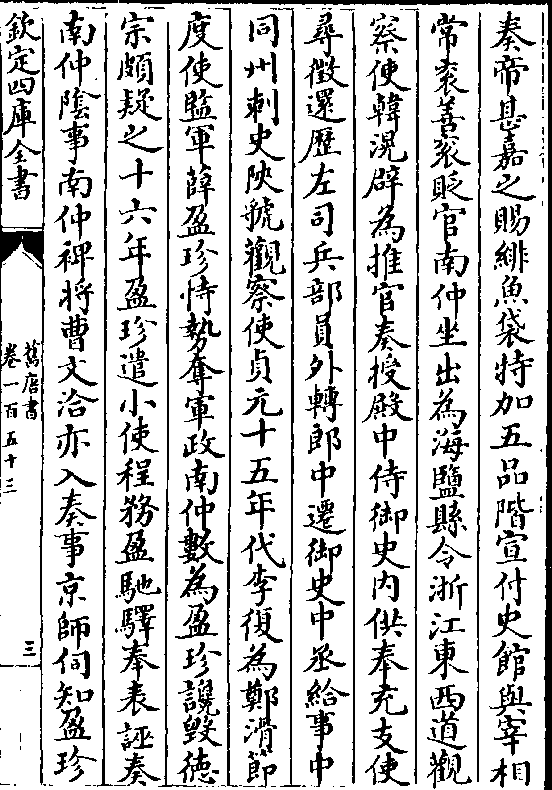 奏帝甚嘉之賜緋魚袋特加五品階宣付史館與宰相
常衮善衮貶官南仲坐出為海鹽縣令浙江東西道觀
察使韓滉辟為推官奏授殿中侍御史内供奉充支使
尋徵還歷左司兵部員外轉郎中遷御史中丞給事中
同州刺史陜虢觀察使貞元十五年代李復為鄭滑節
度使監軍薛盈珍恃勢奪軍政南仲數為盈珍讒毀徳
宗頗疑之十六年盈珍遣小使程務盈馳驛奉表誣奏
南仲陰事南仲裨將曹文洽亦入奏事京師伺知盈珍
欽定四庫全書
舊唐書
卷一百五十三
三